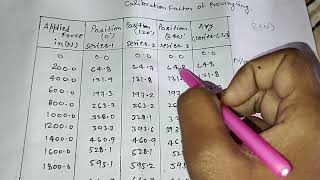 Calibration Factor of Proving ring.
Applied Force in (N) Position (0°) Series-1 Position (120°) Series-2 Position (240°) Series-3 Avg (Series 1,2,3)
0 0.0 0.0 0.0 0.0
200.0 64.8 64.7 64.8 64.8
400.0 131.9 131.8 131. 131.8
600.0 197.3 197.2 197.
800.0 263.3 263.2 263.
1000.0 328.1 328.0 328.
1200.0 393.7 393.6 393.
1400.0 460.9 460.9 460.
1600.0 528.1 528.1 528.
1800.0 595.1 595.2 595.